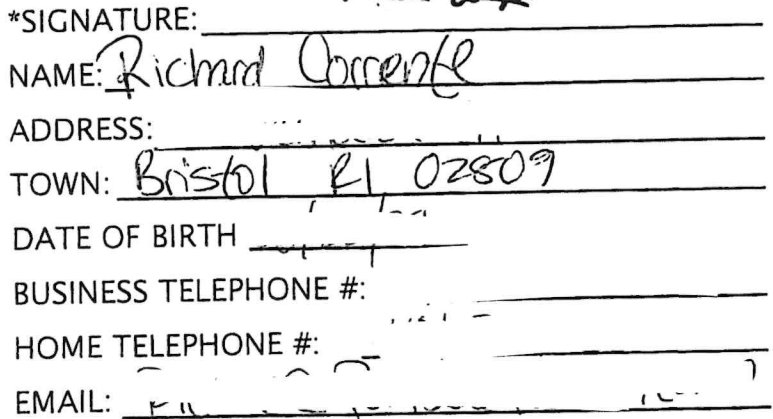 *SIGNATURE:
NAME: Richard Corrente
ADDRESS:
TOWN: Bristol RI 02809
DATE OF BIRTH
BUSINESS TELEPHONE #:
HOME TELEPHONE #:
EMAIL: